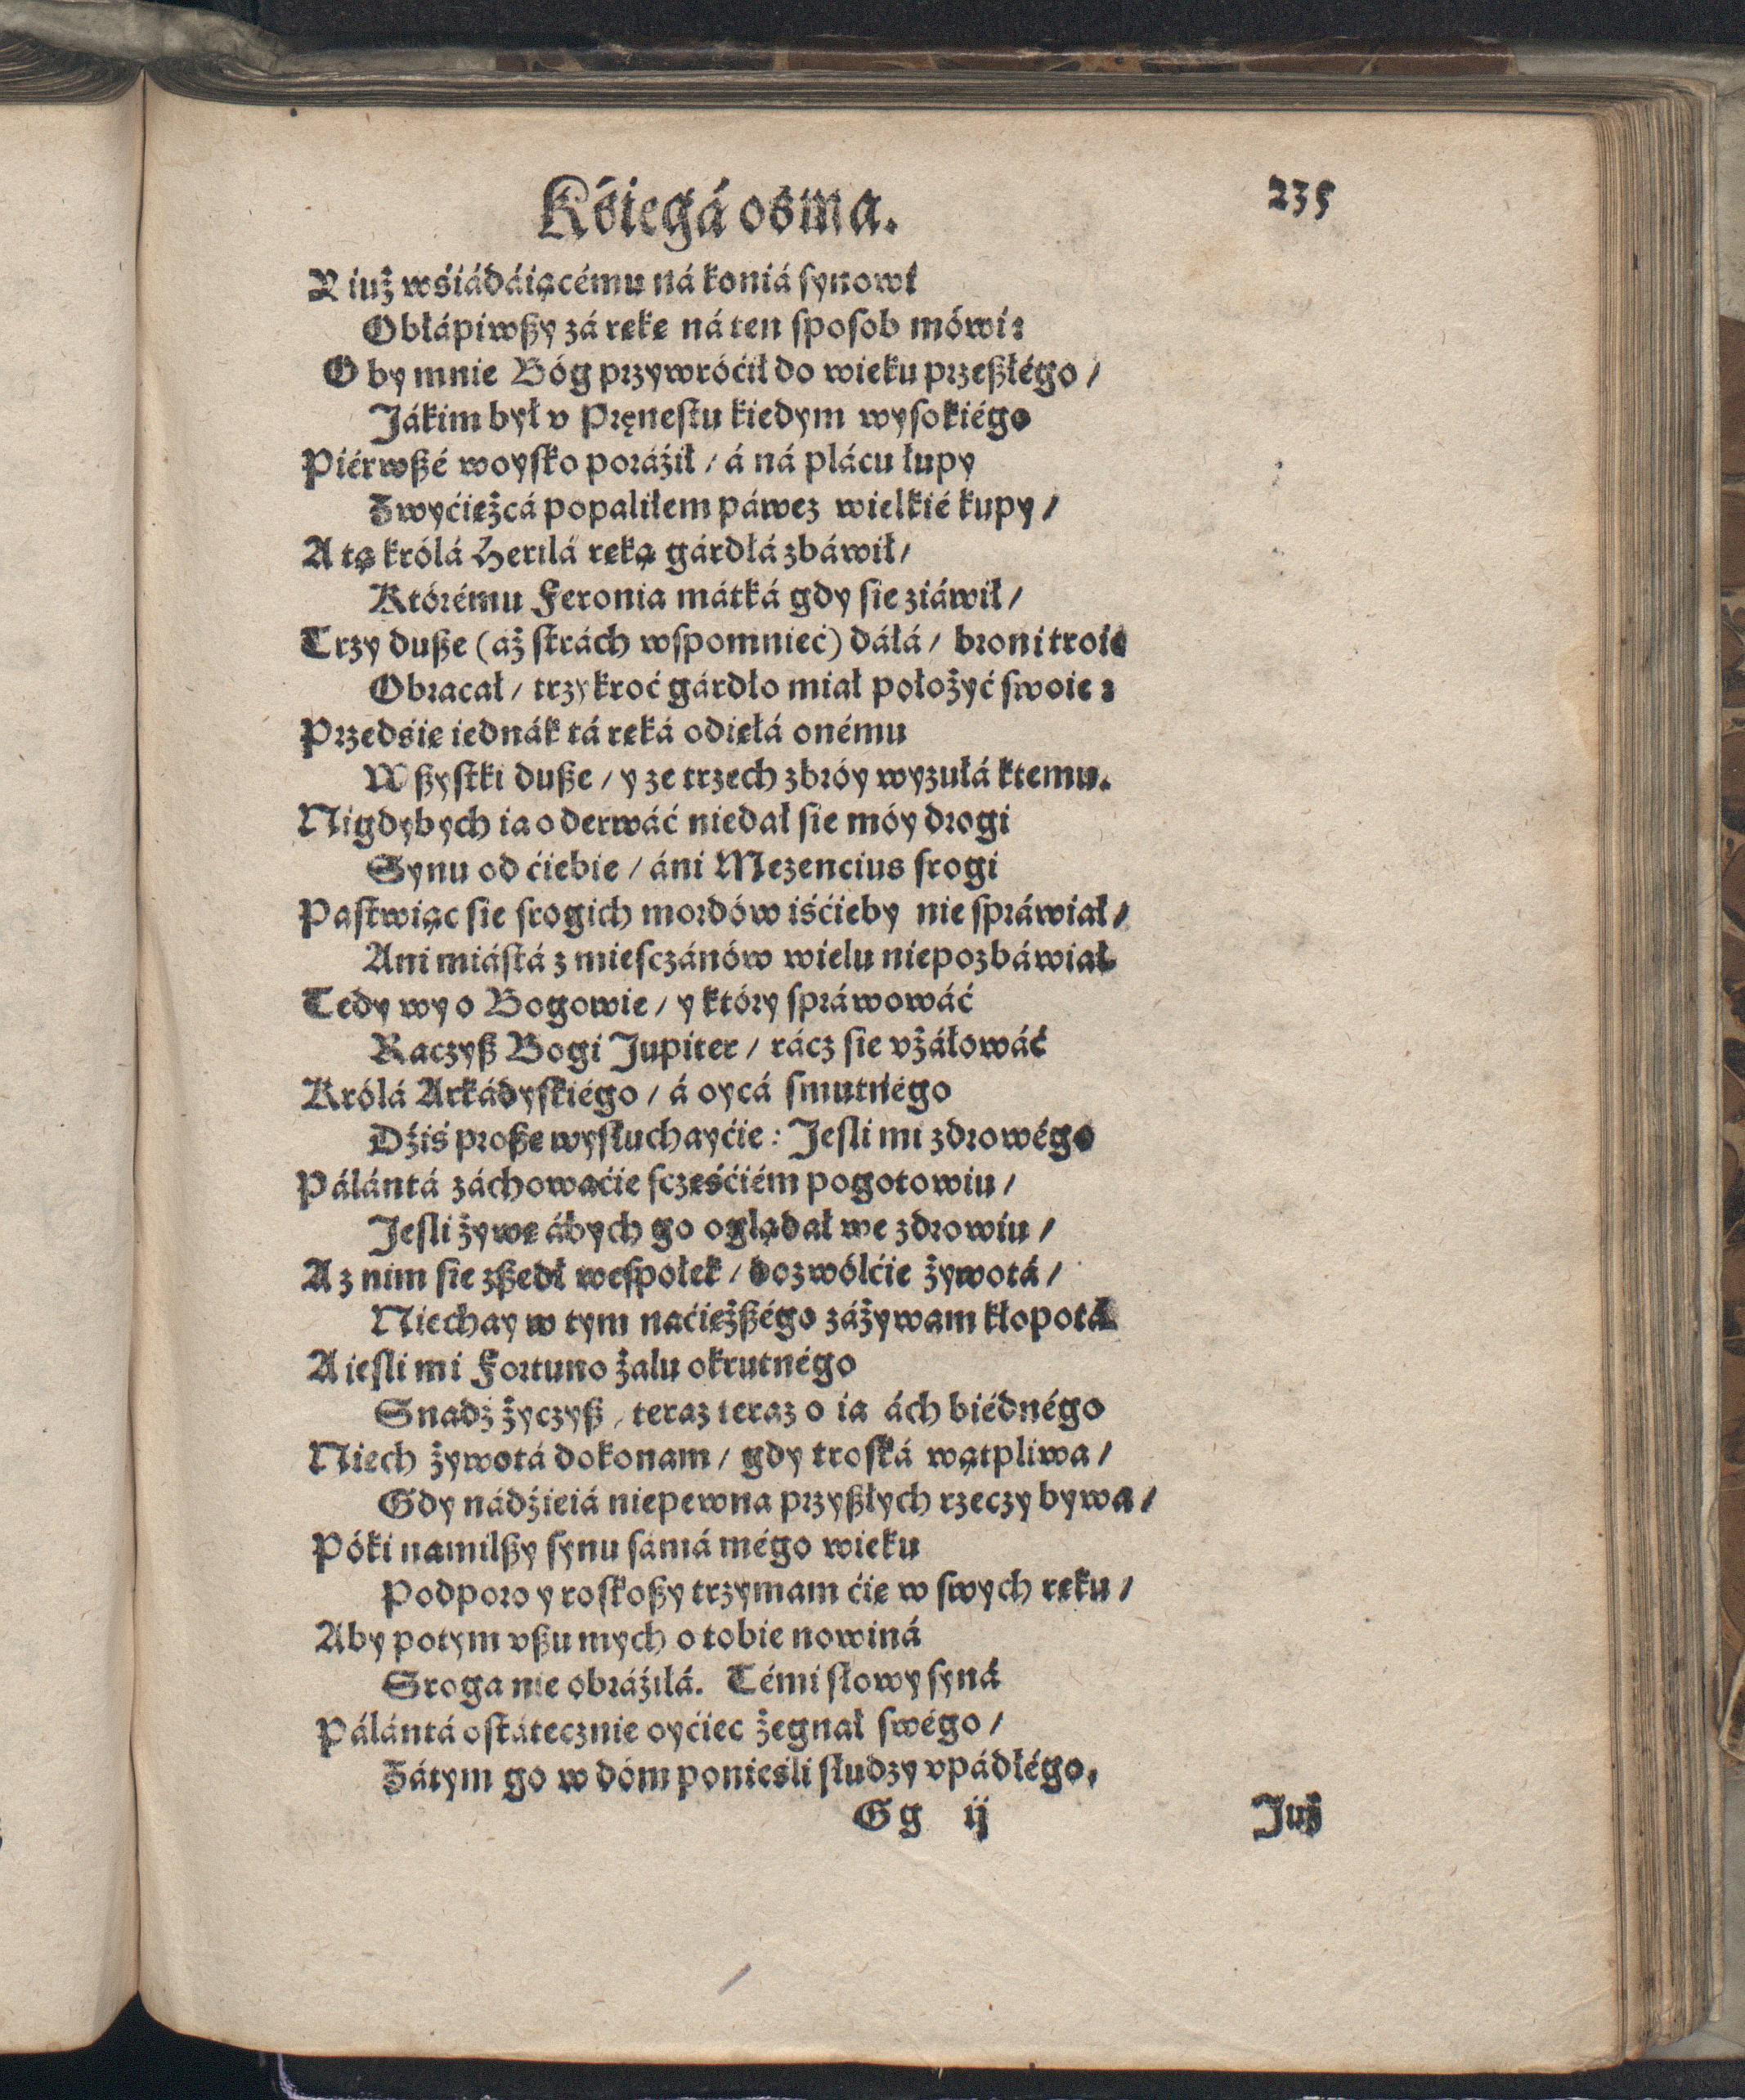 Kśięgá osma.
235
Y iuż wśiádáiącému ná koniá ſynowi
Obłápiwßy zá rękę ná ten ſpoſob mówi:
O by mnie Bóg przywróćił do wieku przeßłégo /
Jákim był v Pręneſtu kiedym wyſokiégo
Piérwßé woyſko poráźił / á ná plácu łupy
Zwyćiężcá popaliłem páwez wielkié kupy /
A tą królá Herilá ręką gárdłá zbáwił /
Którému Feronia mátká gdy ſie ziáwił /
Trzy duße (aż ſtrách wſpomnieć) dáłá / broni troie
Obracał / trzykroć gárdło miał położyć ſwoie:
Przedśię iednák tá ręká odięłá onému
Wßyſtki duße / y ze trzech zbróy wyzułá ktemu.
Nigdybych ia oderwáć niedał ſie móy drogi
Synu od ćiebie / áni Mezencius ſrogi
Paſtwiąc ſie ſrogich mordów iśćieby nie ſpráwiał /
Ani miáſtá z mieſczánów wielu niepozbáwiał.
Tedy wy o Bogowie / y który ſpráwowáć
Raczyß Bogi Jupiter / rácz ſie vżáłowáć
Królá Arkádyſkiégo / á oycá ſmutnégo
Dźiś proßę wyſłuchayćie: Jeſli mi zdrowégo
Pálántá záchowaćie ſczęśćiém pogotowiu /
Jeſli żywę ábych go oglądał we zdrowiu /
A z nim ſie zßedł weſpołek / dozwólćie żywotá /
Niechay w tym naćiężßégo záżywam kłopotá.
A ieſli mi Fortuno żalu okrutnégo
Snadź życzyß / teraz teraz o ia ách biédnégo
Niech żywotá dokonam / gdy troſká wątpliwa /
Gdy nádźieiá niepewna przyßłych rzeczy bywa /
Póki namilßy ſynu ſámá mégo wieku
Podporo y roſkoßy trzymam ćię w ſwych ręku /
Aby potym vßu mych o tobie nowiná
Sroga nie obráźiłá. Témi ſłowy ſyná
Pálántá oſtátecznie oyćiec żegnał ſwégo /
Zátym go w dóm ponieśli ſłudzy vpádłégo,
Gg ij
Już